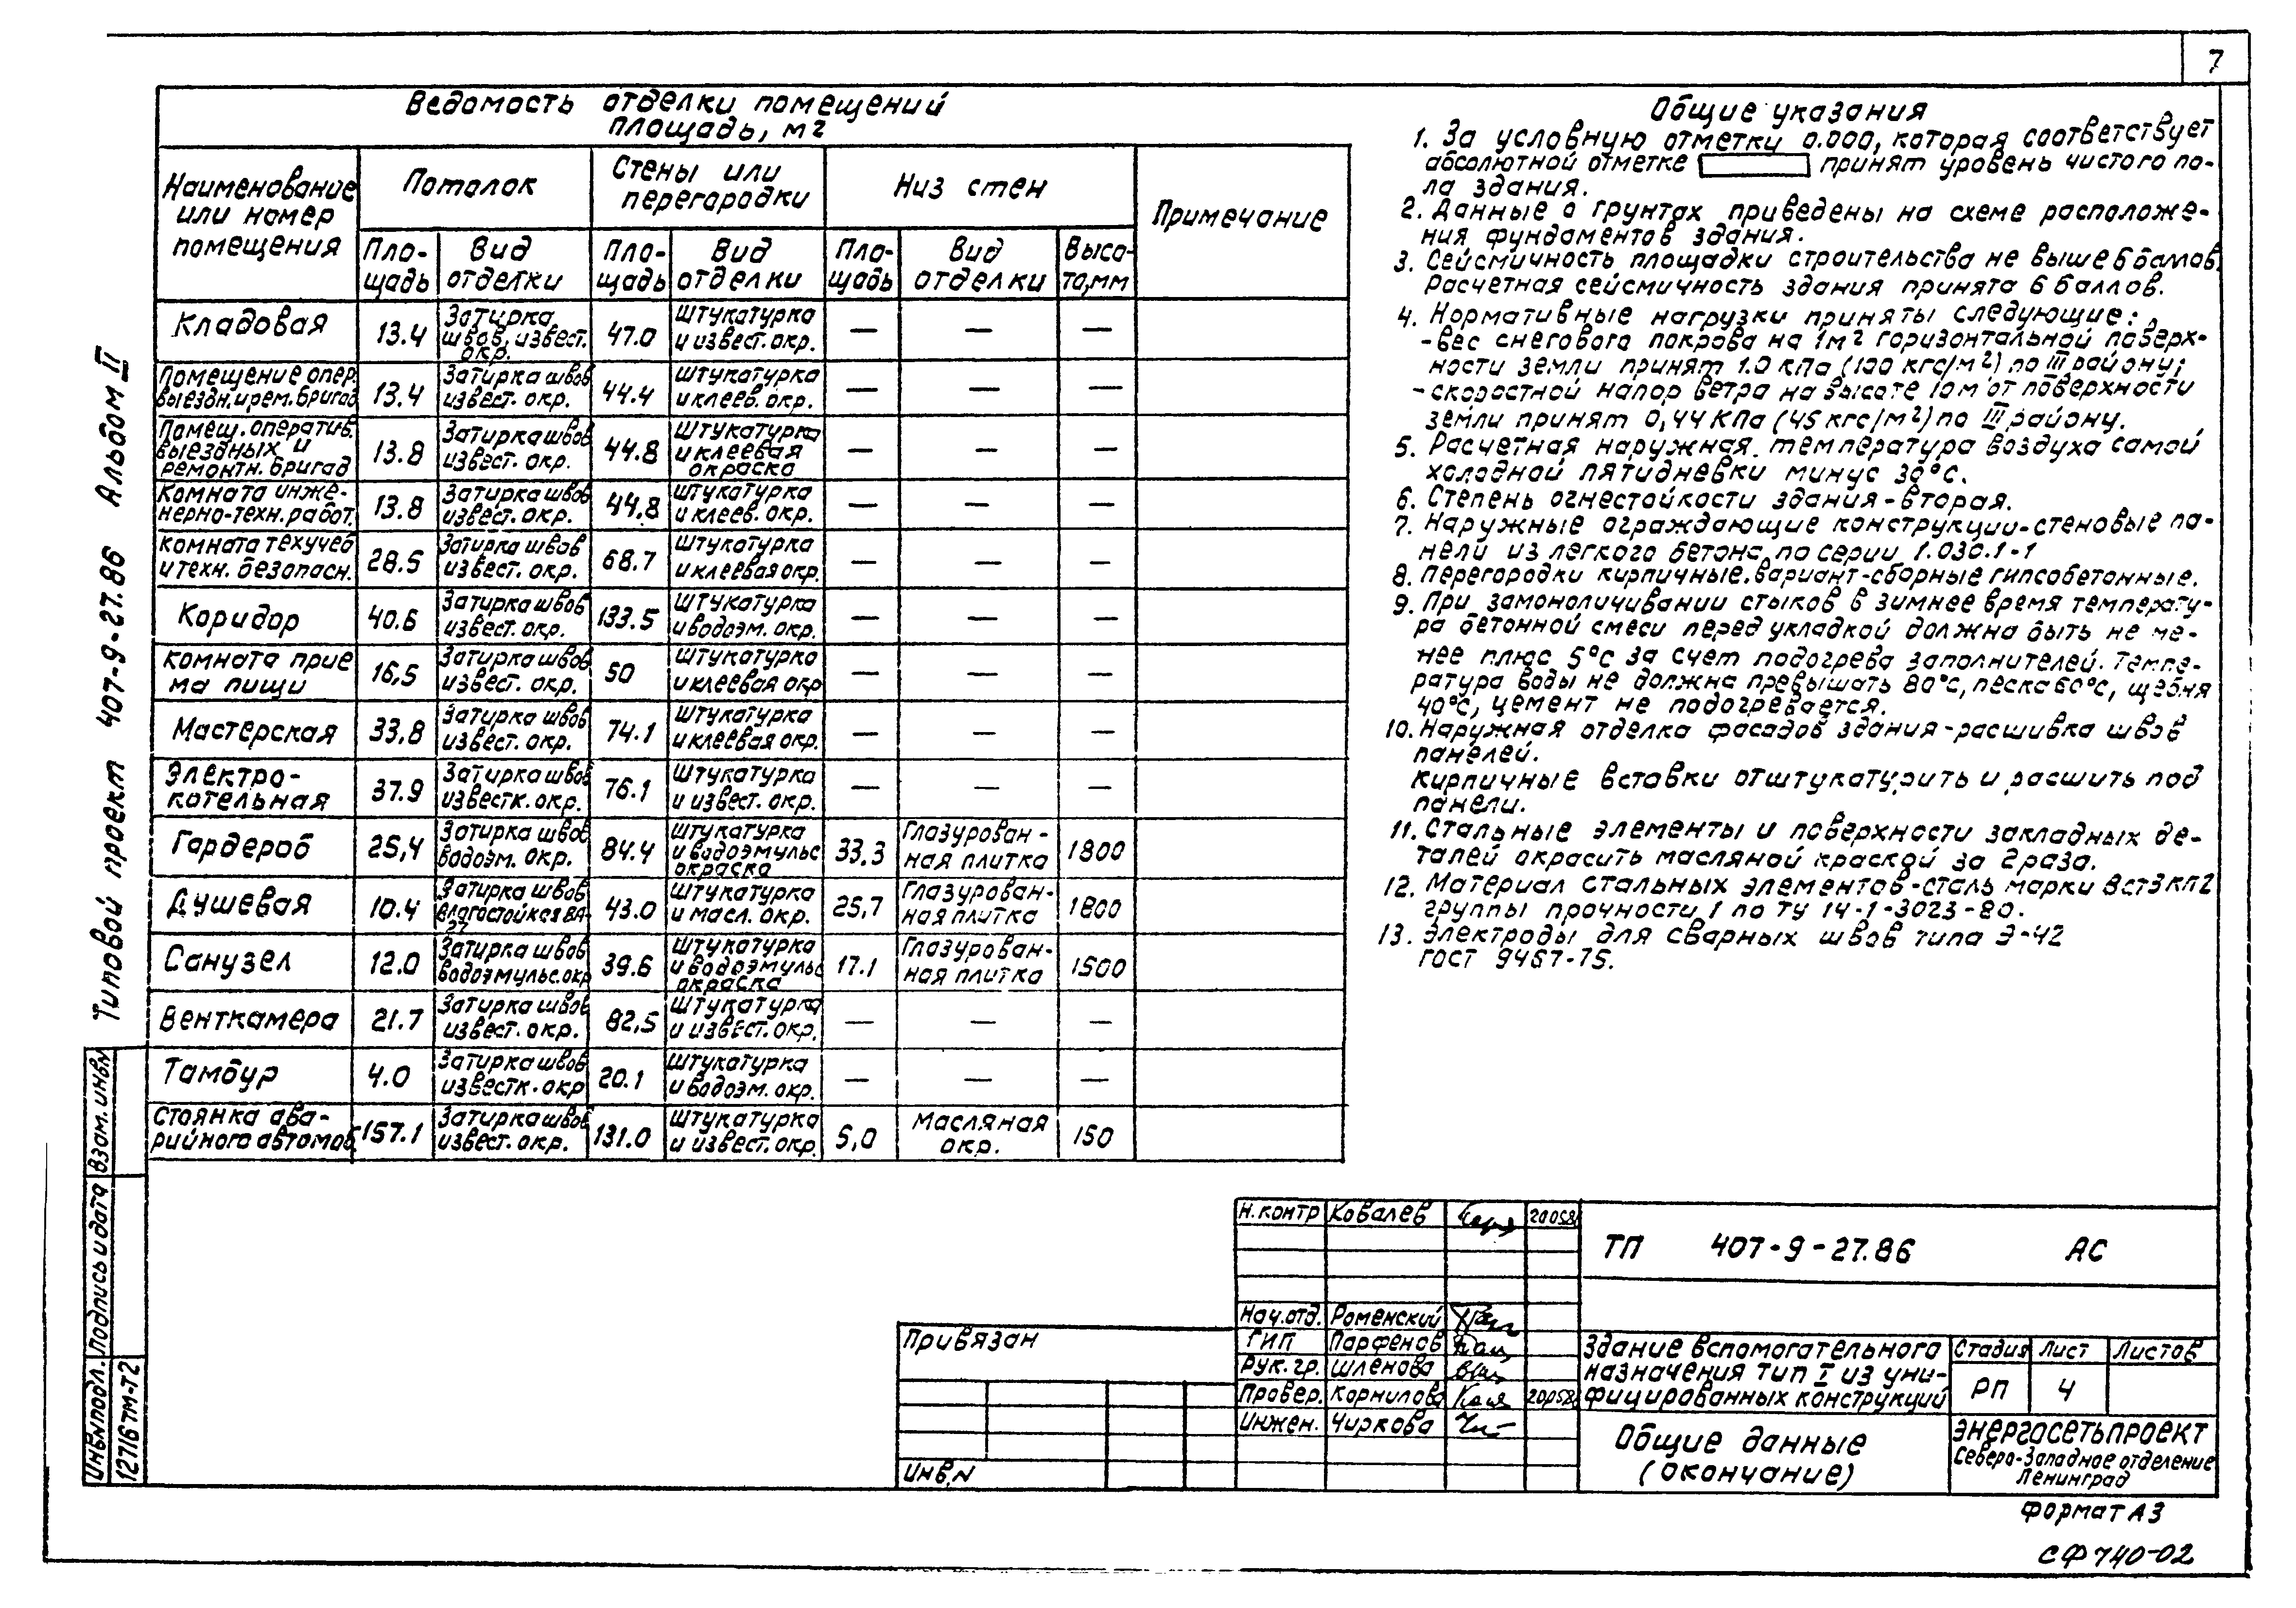 7
Ведомость отделки помещений
площадь, м2
Наименование или номер помещения | Потолок | Стены или перегородки | Низ стен | Примечание
Пло-щадь | Вид отделки | Пло-щадь | Вид отделки | Пло-щадь | Вид отделки | Высо-та,мм
Кладовая | 13.4 | Затирка швов, извест. окр. | 47.0 | Штукатурка и извест. окр. | — | — | —
Помещение опер. выездн. и рем. бригад | 13.4 | Затирка швов извест. окр. | 44.4 | Штукатурка и клеев. окр. | — | — | —
Помещ. оператив. выездных и ремонтн. бригад | 13.8 | Затирка швов извест. окр. | 44.8 | Штукатурка и клеевая окраска | — | — | —
Комната инже-нерно-техн. работ. | 13.8 | Затирка швов извест. окр. | 44,8 | Штукатурка и клеев. окр. | — | — | —
Комната техучеб и техн. безопасн. | 28.5 | Затирка швов извест. окр. | 68.7 | Штукатурка и клеевая окр. | — | — | —
Коридор | 40.6 | Затирка швов извест. окр. | 133.5 | Штукатурка и водоэм. окр. | — | — | —
Комната прие ма пищи | 16,5 | Затирка швов извест. окр. | 50 | Штукатурка и клеевая окр | — | — | —
Мастерская | 33,8 | Затирка швов извест. окр. | 74.1 | Штукатурка и клеевая окр. | — | — | —
Электро-котельная | 37.9 | Затирка швов известк. окр. | 76.1 | Штукатурка и извест. окр. | — | — | —
Гардероб | 25,4 | Затирка швов водоэм. окр. | 84.4 | Штукатурка и водоэмульс окраска | 33,3 | Глазурован-ная плитка | 1800
Душевая | 10.4 | Затирка швов влагостойкая ВА-27 | 43.0 | Штукатурка и масл. окр. | 25,7 | Глазурован-ная плитка | 1800
Санузел | 12.0 | Затирка швов водоэмульс. окр | 39.6 | Штукатурка и водоэмульс окраска | 17.1 | Глазурован-ная плитка | 1500
Венткамера | 21.7 | Затирка швов извест. окр. | 82,5 | Штукатурка и извест. окр. | — | — | —
Тамбур | 4.0 | Затирка швов известк. окр | 20.1 | Штукатурка и водоэм. окр. | — | — | —
Стоянка ава-рийного автомоб. | 157.1 | Затирка швов извест. окр. | 131.0 | Штукатурка и извест. окр. | 5,0 | Масляная окр. | 150
Общие указания
1. За условную отметку 0.000, которая соответствует
абсолютной отметке принят уровень чистого по-
ла здания.
2. Данные о грунтах приведены на схеме расположе-
ния фундаментов здания.
3. Сейсмичность площадки строительства не выше 6 баллов,
расчетная сейсмичность здания принята 6 баллов.
4. Нормативные нагрузки приняты следующие:
-вес снегового покрова на 1м2 горизонтальной поверх-
ности земли принят 1.0 кПа (100 кгс/м2) по III району;
-скоростной напор ветра на высоте 10м от поверхности
земли принят 0,44 КПа (45 кгс/м2) по III району.
5. Расчетная наружная температура воздуха самой
холодной пятидневки минус 30°С.
6. Степень огнестойкости здания-вторая.
7. Наружные ограждающие конструкции-стеновые па-
нели из легкого бетона по серии 1.030.1-1
8. Перегородки кирпичные. Вариант-сборные гипсобетонные.
9. При замоноличивании стыков в зимнее время температу-
ра бетонной смеси перед укладкой должна быть не ме-
нее плюс 5°С за счет подогрева заполнителей. Темпе-
ратура воды не должна превышать 80°С, песка 60°С, щебня
40°С, цемент не подогревается.
10. Наружная отделка фасадов здания-расшивка швов
панелей.
Кирпичные вставки отштукатурить и расшить под
панели.
11. Стальные элементы и поверхности закладных де-
талей окрасить масляной краской за 2 раза.
12. Материал стальных элементов-сталь марки ВСт3кп2
группы прочности 1 по ТУ 14-1-3023-80.
13. Электроды для сварных швов типа Э-42
ГОСТ 9467-75.
Типовой проект 407-9-27.86 Альбом II
Взам. инв.N
Подпись и дата
Инв.N подл.
12716тм-Т2
Привязан
Инв.N
Н.контр Ковалев 20.05.8
Нач.отд. Роменский
ГИП Парфенов
Рук.гр. Шленова
Провер. Корнилова 20.05.8
Инжен. Чиркова
ТП 407-9-27.86 АС
Здание вспомогательного
назначения тип I из уни-
фицированных конструкций
Стадия Лист Листов
РП 4
Общие данные
(окончание)
ЭНЕРГОСЕТЬПРОЕКТ
Северо-Западное отделение
Ленинград
Формат А3
СФ 740-02